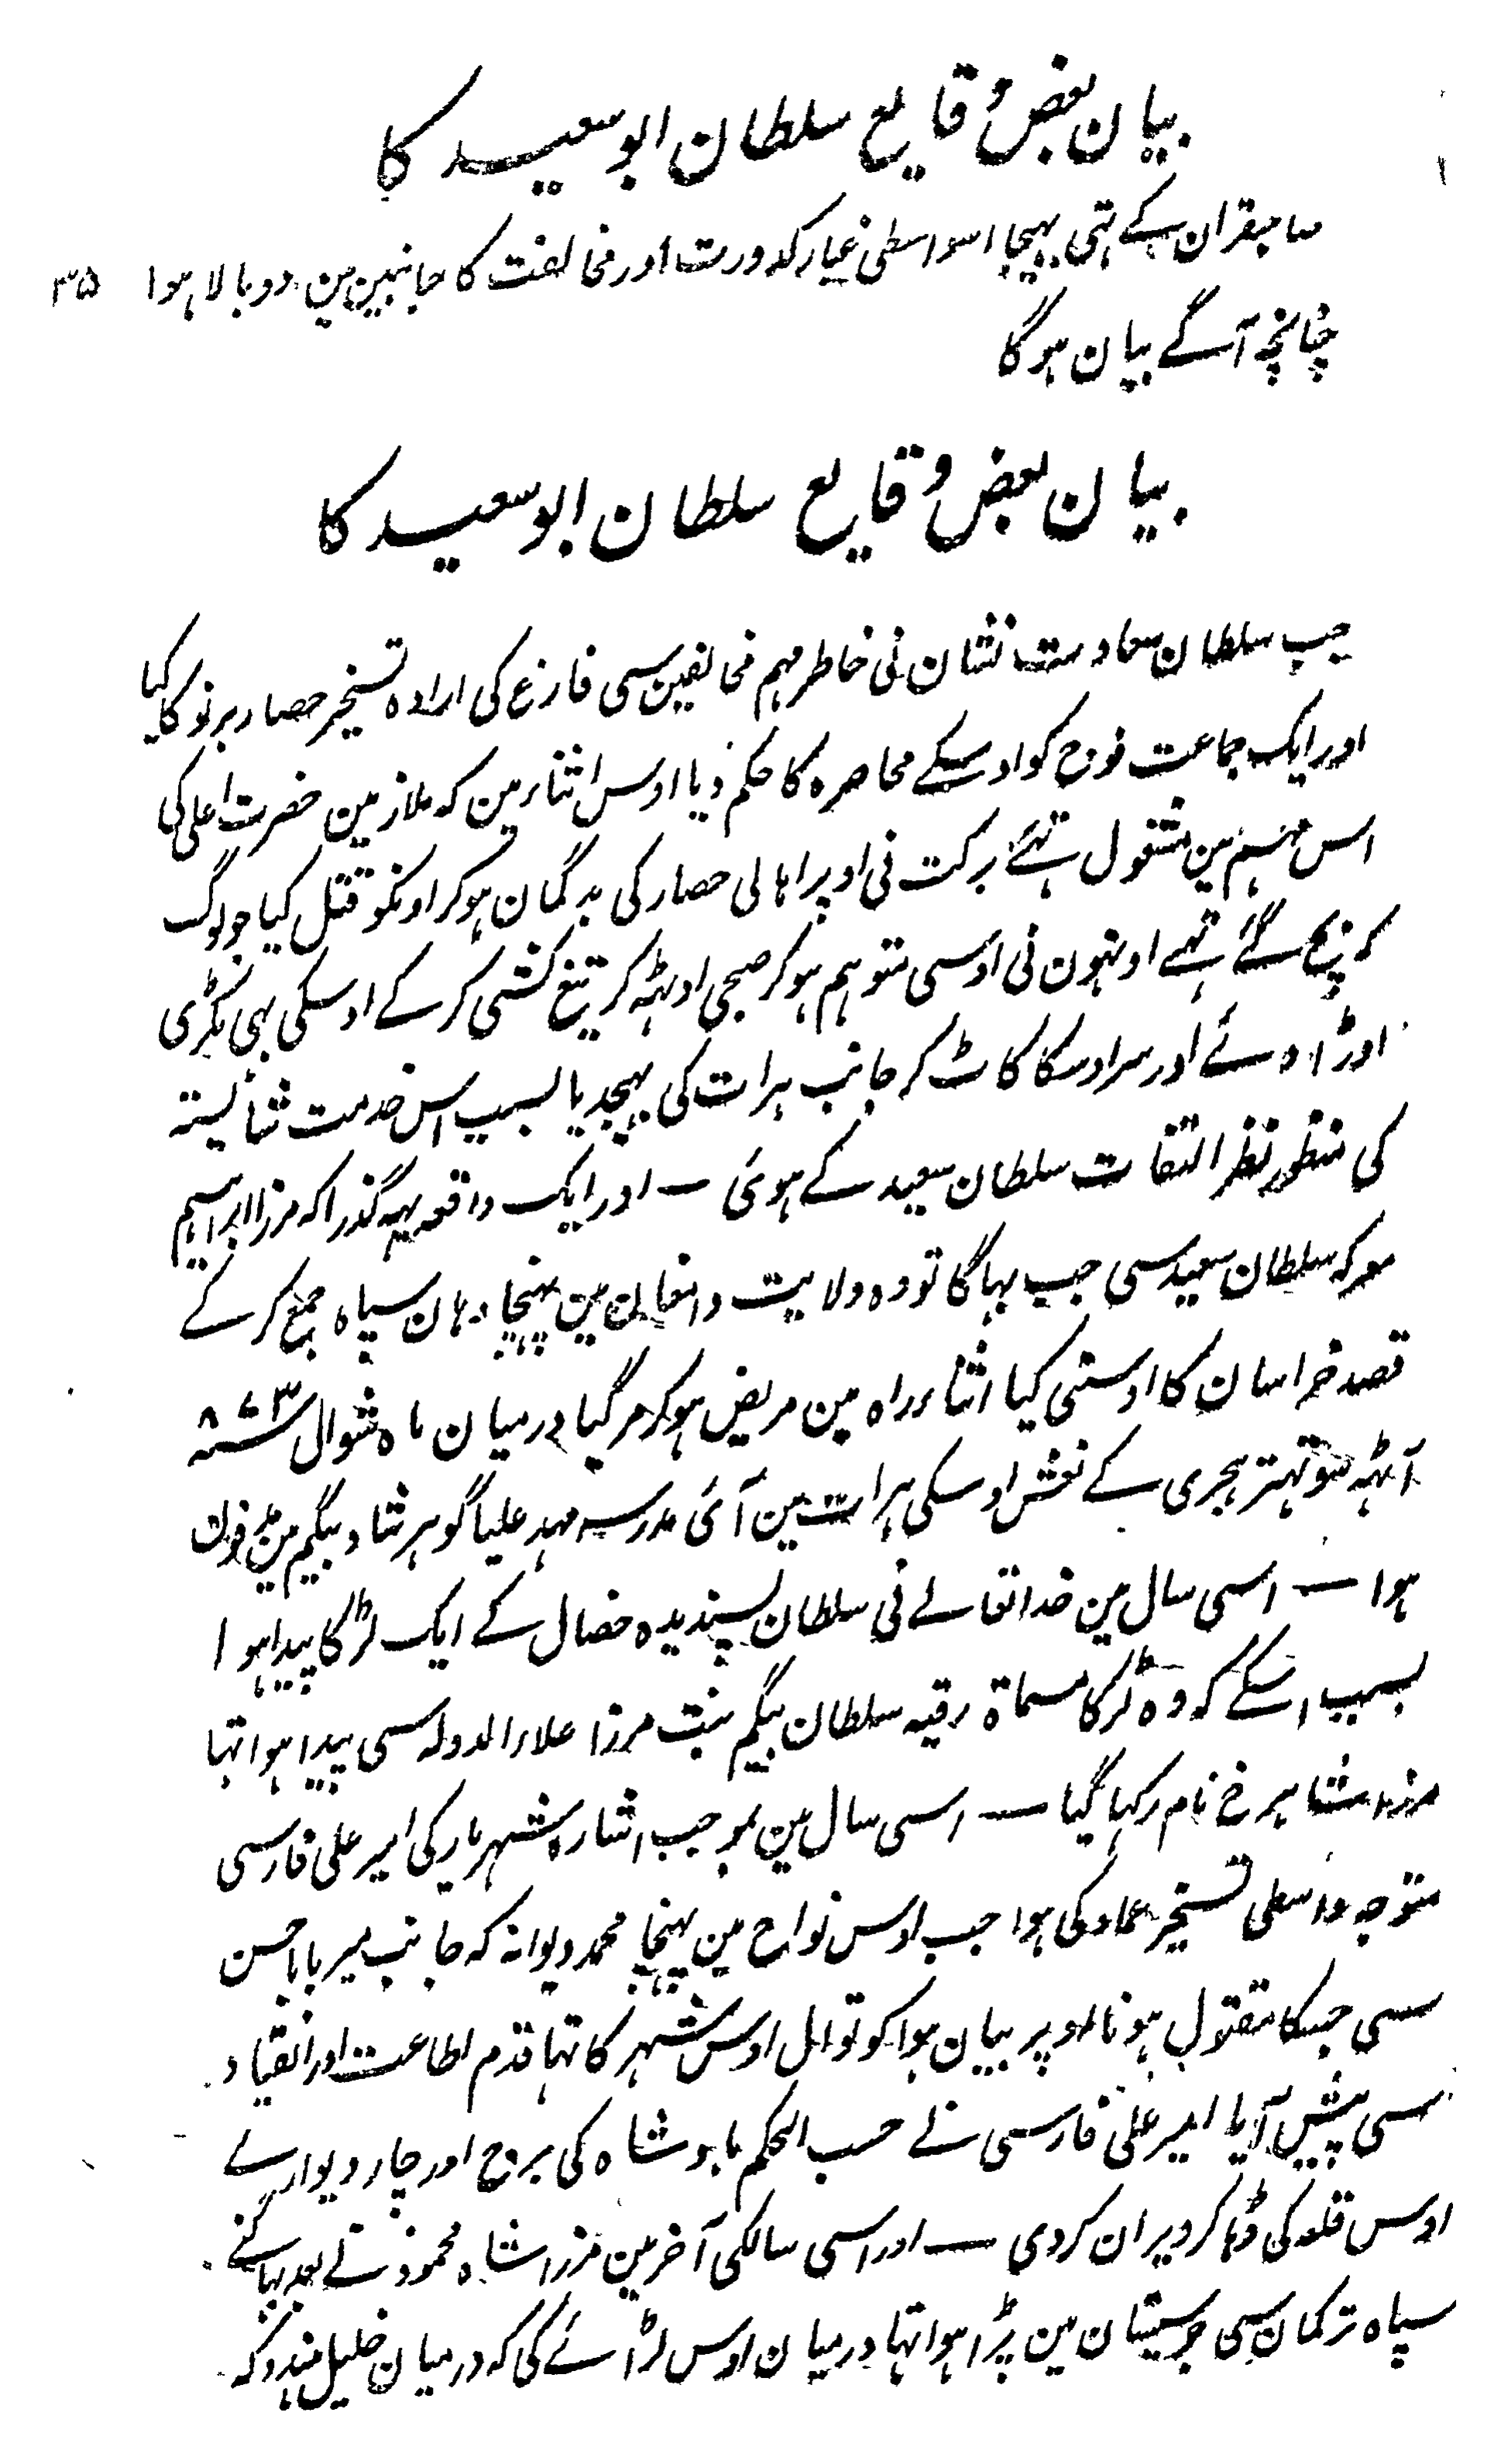 بیان بعض وقایع سلطان ابو سعید کا
صاحبقران کے تئی بہیجا اسواسطی غبار کدورت اور مخالفت کا جانبین مین دوبالا ہوا ۳۵
چنانچہ آگے بیان ہوگا
بیان بعض وقایع سلطان ابو سعید کا
جب سلطان سعادت نشان نی خاطر مہم مخالفین سی فارغ کی ارادہ تسخیر حصار برنو کا کیا
اور ایک جماعت فوج کو اوسکے محاصرہ کا حکم دیا اوس اثنار مین کہ ملازمین حضرت اعلی کی
اس مہم مین مشغول تہے برکت نی اوپر اہالی حصار کی بدگمان ہوکر اونکو قتل کیا جو لوگ
کہ بچ گئے تہے اونہون نی اوسی متوہم ہوکر صبحی اوٹہہ کر تیغ کشی کرکے اوسکی بہی ٹکڑی
اوڑادئے اور سر اوسکا کاٹ کر جانب ہرات کی بہیجدیا بسبب اس خدمت شائستہ
کی منظور نظر التفات سلطان سعید کے ہوئی — اور ایک واقعہ یہہ گذرا کہ مرزا ابراہیم
معرکہ سلطان سعید سی جب بہاگا تو وہ ولایت دامغان مین پہنچا وہان سپاہ جمع کرکے
قصد خراسان کا اوسنی کیا اثنار راہ مین مریض ہوکر مرگیا درمیان ماہ شوال سنہ ۸۷۳
آٹہہ سو تہتر ہجری کے نعش اوسکی ہرات مین آئی مدرسہ مہد علیا گوہر شاد بیگم مین مدفون
ہوا — اسی سال مین خدا تعالے نی سلطان پسندیدہ خصال کے ایک لڑکا پیدا ہوا
بسبب اسکے کہ وہ لڑکا مسماۃ رقیہ سلطان بیگم بنت مرزا علاء الدولہ سی پیدا ہوا تہا
مرزا شاہرخ نام رکہا گیا — اسی سال مین بموجب اشارہ شہریار کی امیر علی فارسی
متوجہ واسطی تسخیر عماد کی ہوا جب اوس نواح مین پہنچا محمد دیوانہ کہ جانب میر بابا حسن
سی جسکا مقتول ہونا اوپر بیان ہوا کوتوال اوس شہر کا تہا قدم اطاعت اور انقیاد
سی پیش آیا امیر علی فارسی نے حسب الحکم بادشاہ کی برج اور چار دیوارے
اوس قلعہ کی ڈہا کر ویران کردی — اور اسی سالکی آخر مین مرزا شاہ محمود نے بعد بہاگنے
سپاہ ترکمان سی جو سیستان مین پڑا ہوا تہا درمیان اوس لڑائے کی کہ درمیان خلیل ہندو کہ